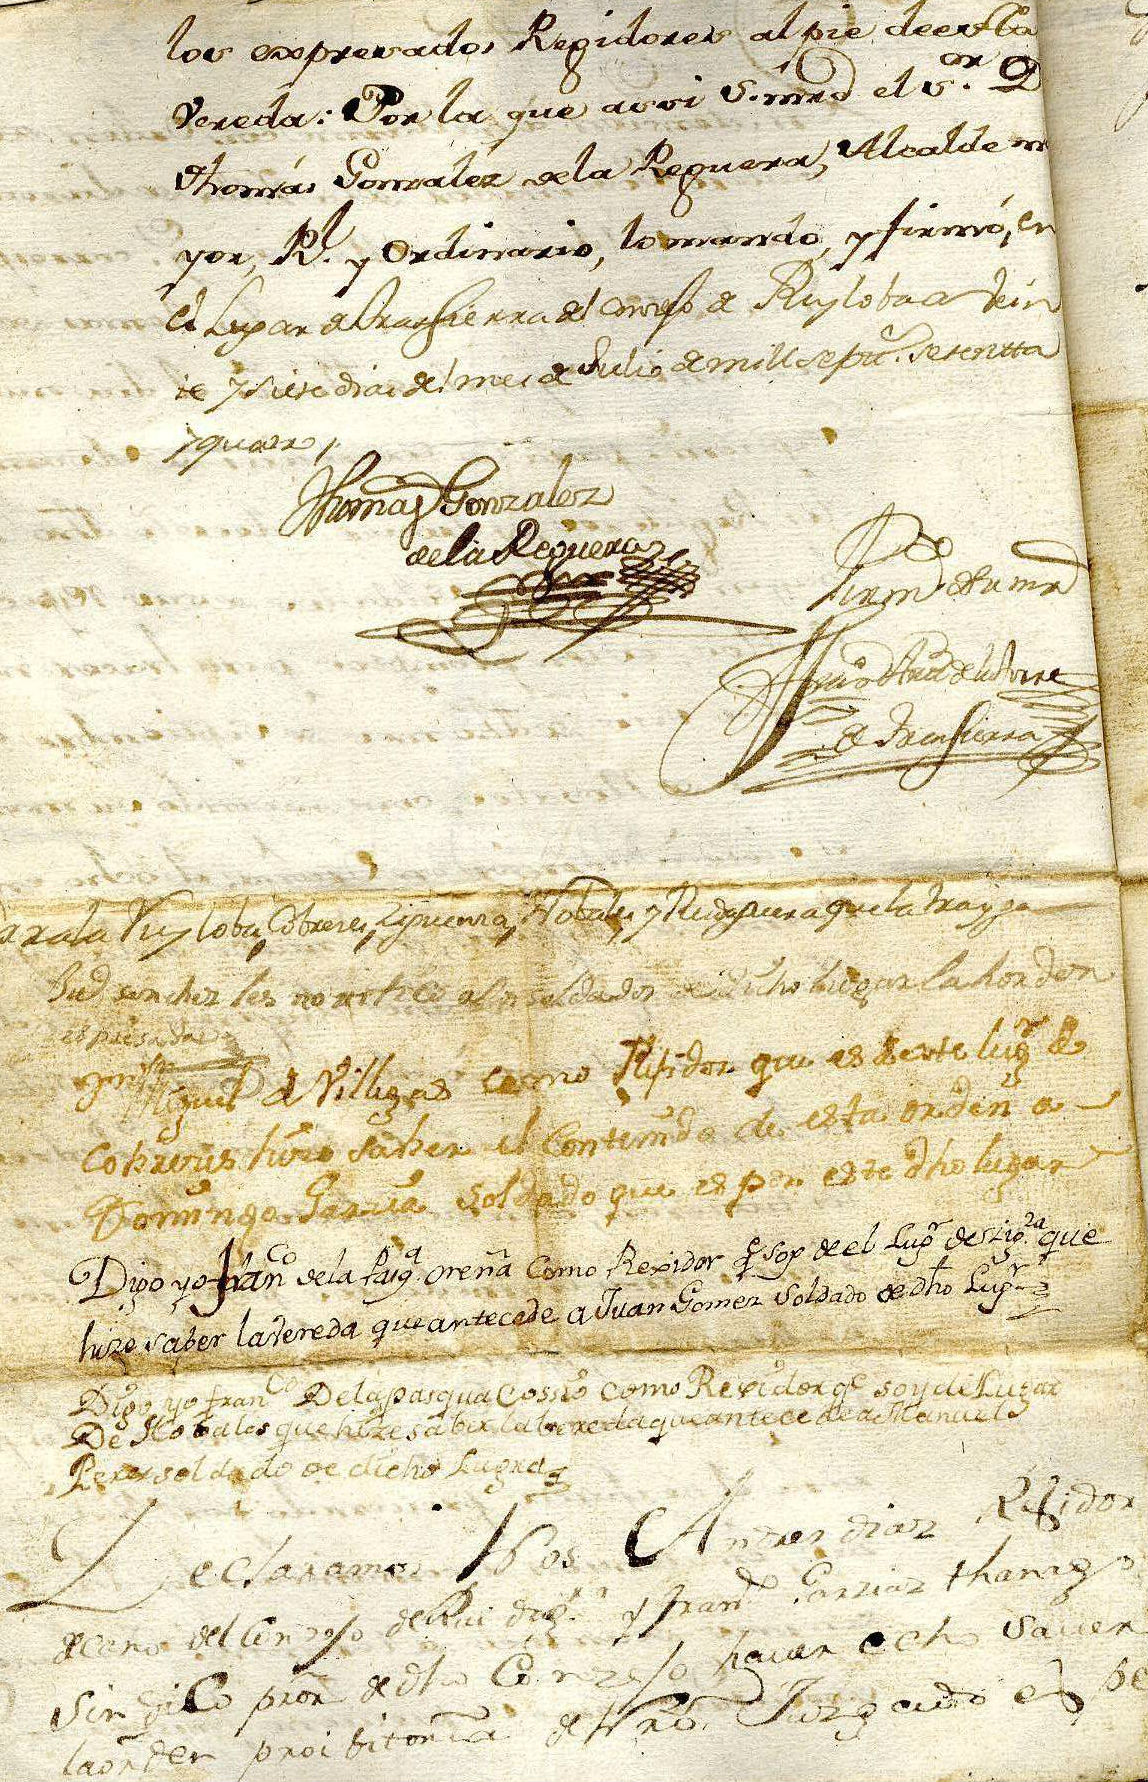 los expresados Regidores al pie de esta
Vereda: Por la que assi S. mrd el S.or D
Thomás Gonzalez de la Reguera, Alcalde ma
yor, Rl. y Ordinario, lo mando, y firmó, en
el Lugar de Trasierra del Conzejo de Ruyloba a Vein
te y siete dias del mes de Julio de mill septs. setentta
y quatro
Thomas Gonzalez
de la Reguera
Por mdo de su mrd
de la Torre
de Trasierra
Ruyloba, Cobreses, Ziguenza, Nobales y Rudaguera que la trayga
Sanchez les notifico a los soldados de dicho lugar la horden
espresada
Miguel de Villegas como Rejidor que es de este lugr de
Cobreces hizo saber el Contenido de esta orden a
Domingo Garcia soldado que es por este dho lugar
Digo yo Franco de la Pasqa oreña Como Rexidor q soy de el Lugr de Zigza que
hize saber la Vereda que antecede a Juan Gomez Soldado de dho Lugr
Digo yo franco De la pasqua Cossio como Rexidor qe soy de Lugar
De Nobales que hize saber la bereda que antecede a Manuel
Perez soldado de dicho Lugar
Declaramos Nos Andres diaz Rejidor
deceno del Conzejo de Rudagra y Franco Garzia
Sindico pror de dho Conzejo haver echo Saver
la orden proibitoria de Nro Juzgado